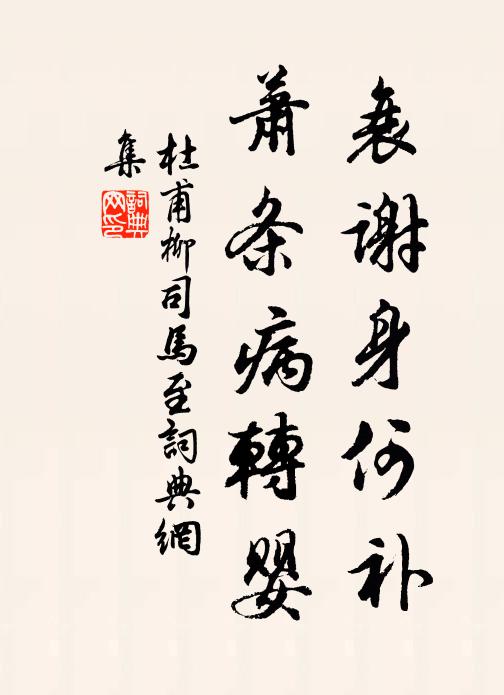 衰谢身何补
萧条病转婴
杜甫柳司馬至詞典網
集
詞典网印